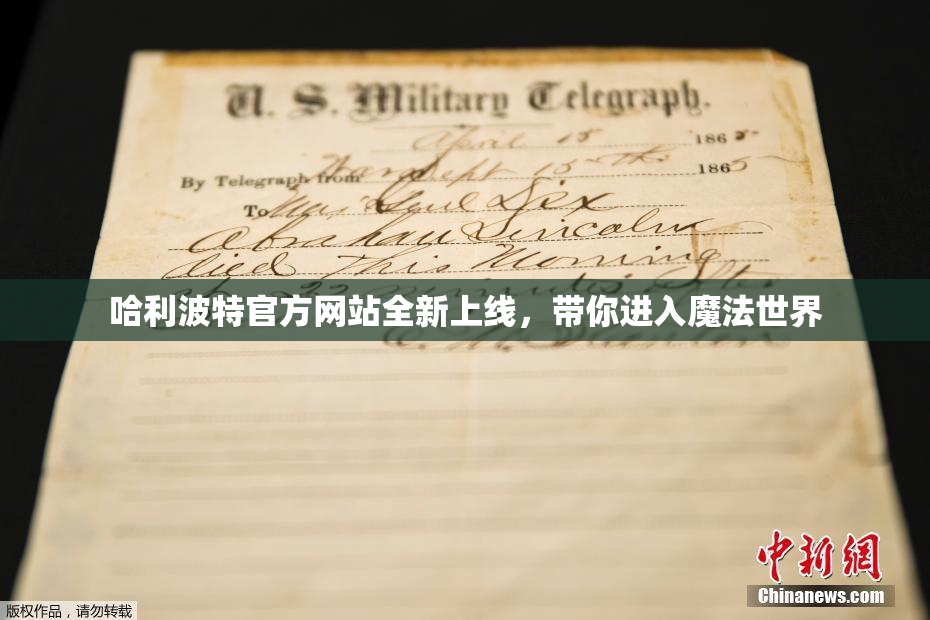 U. S. Military Telegraph.
April 15 1865
By Telegraph from War Dept 15th 1865
To Maj Genl Dix
Abraham Lincoln
died This Morning
22 minutes after
哈利波特官方网站全新上线，带你进入魔法世界
E. M. Stanton
中新網
Chinanews.com
版权作品，请勿转载